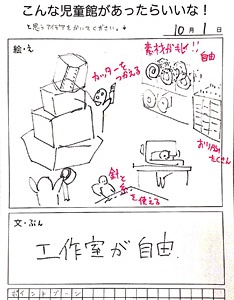 こんな児童館があったらいいな！
と思うアイデアをかいてください。
10月1日
絵・え
カッターをつかえる
素材がたくさん!!
自由
おりがみたくさん
針と糸を使える
文・ぶん
工作室が自由.